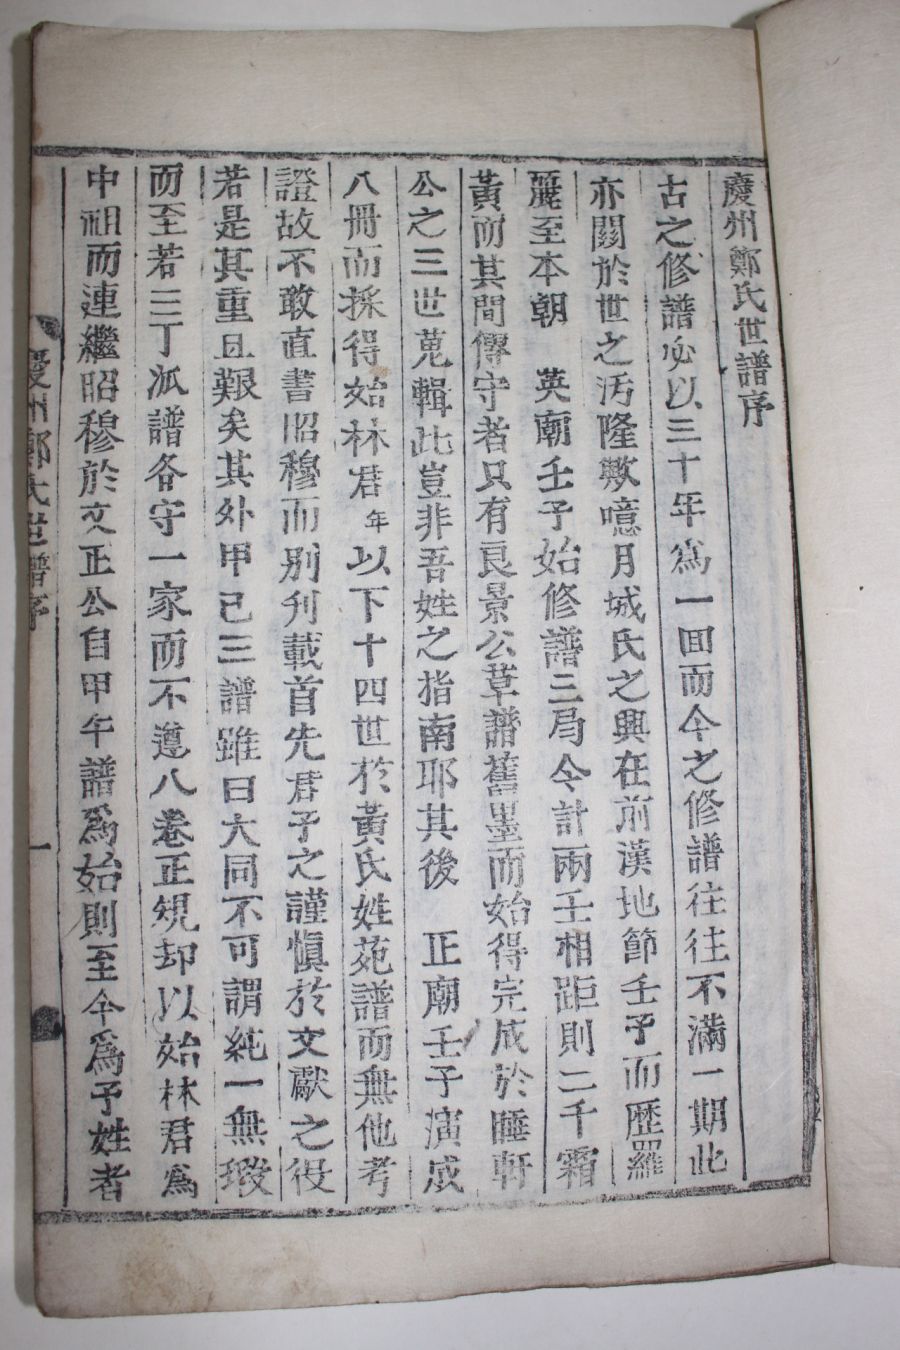 慶州鄭氏世譜序
古之修譜必以三十年爲一回而今之修譜往往不滿一期此
亦關於世之汚隆歟噫月城氏之興在前漢地節壬子而歷羅
麗至本朝 英廟壬子始修譜三局今計兩壬相距則二千霜
黃而其間傳守者只有良景公草譜舊墨而始得完成於睡軒
公之三世蒐輯此豈非吾姓之指南耶其後 正廟壬子演成
八冊而採得始林君年以下十四世於黃氏姓苑譜而無他考
證故不敢直書昭穆而別刋載首先君子之謹愼於文獻之役
若是其重且艱矣其外甲己三譜雖曰大同不可謂純一無瑕
而至若三丁派譜各守一家而不遵八卷正規却以始林君爲
中祖而連繼昭穆於文正公自甲午譜爲始則至今爲予姓者
慶州鄭氏世譜序
一